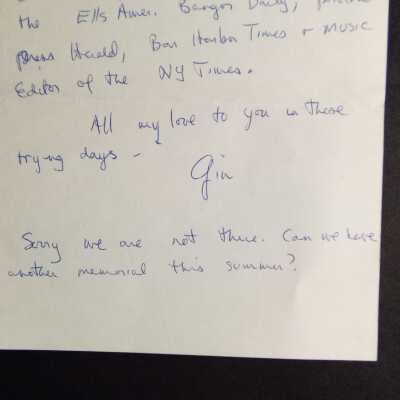 the Ells Amer. Bangor Daily,
press Herald, Bar Harbor Times + music
Editor of the NY Times.
All my love to you in these
trying days -
Gin
Sorry we are not there. Can we have
another memorial this summer?